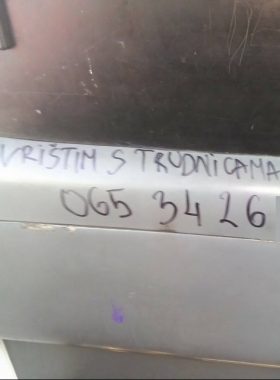 VRIŠTIM S TRUDNICAMA
065 34 26